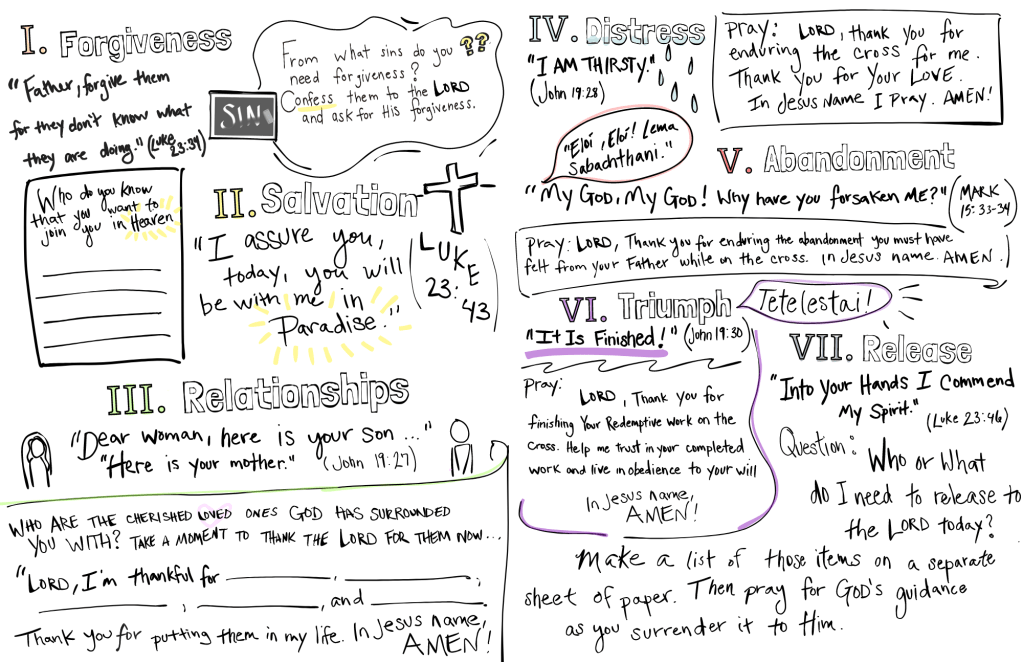 I. Forgiveness
"Father, forgive them
for they don't know what
they are doing." (Luke
23:34)
??
From what sins do you
need forgiveness?
Confess them to the LORD
and ask for His forgiveness.
SIN!
Who do you know
that you want to
join you in Heaven
II. Salvation
"I assure you,
today, you will
be with me in
Paradise."
(LUKE
23:
43)
III. Relationships
"Dear woman, here is your son ..."
"Here is your mother." (John 19:27)
WHO ARE THE CHERISHED LOVED ONES GOD HAS SURROUNDED
YOU WITH? TAKE A MOMENT TO THANK THE LORD FOR THEM NOW...
"LORD, I'm thankful for __________, __________,
__________, __________, and __________.
Thank you for putting them in my life. In Jesus name,
AMEN!
IV. Distress
"I AM THIRSTY."
(John 19:28)
Pray: LORD, thank you for
enduring the cross for me.
Thank You for Your LOVE.
In Jesus Name I Pray. AMEN!
"Eloi, Eloi! Lema
Sabachthani."
V. Abandonment
"My God, My God! Why have you forsaken ME?" (MARK
15:33-34)
Pray: LORD, Thank you for enduring the abandonment you must have
felt from your Father while on the cross. In Jesus name. AMEN.
VI. Triumph
Tetelestai!
"It Is Finished!" (John 19:30)
Pray:
LORD, Thank You for
finishing Your Redemptive work on the
Cross. Help me trust in your completed
work and live in obedience to your will
In Jesus name,
AMEN!
VII. Release
"Into Your Hands I Commend
My Spirit."
(Luke 23:46)
Question: Who or What
do I need to release to
the LORD today?
Make a list of those items on a separate
sheet of paper. Then pray for God's guidance
as you surrender it to Him.